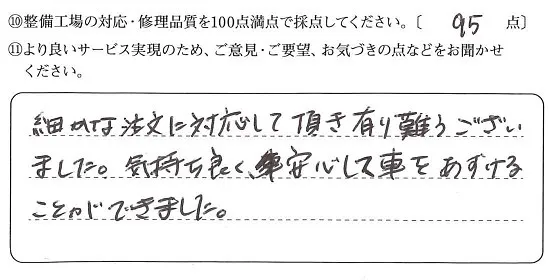 ⑩整備工場の対応・修理品質を100点満点で採点してください。〔 95 点〕
⑪より良いサービス実現のため、ご意見・ご要望、お気づきの点などをお聞かせ
ください。
細かな注文に対応して頂き有り難うござい
ました。気持ち良く、安心して車をあずける
ことができました。